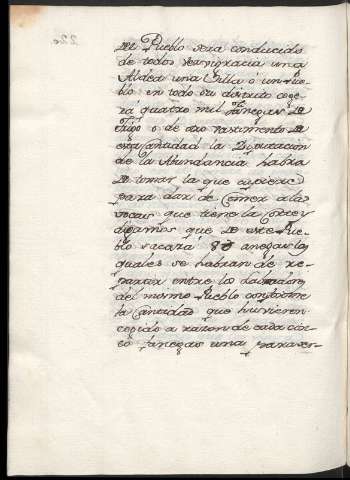 del Pueblo sera conducido
de todos vervigracia una
Aldea una Villa ó un Pue-
blo en todo su distrito coge-
rá quatro mil fanegas de
trigo o de otro vastimento de
esta Cantidad la Diputacion
de la Abundancia habra
de tomar la que cupiere
para dar de Comer a las
vocas que tiene la Corte y
digamos que de este Pue-
blo sacará 80 anegas las
quales se habran de re-
partir entre los Labradores
del mismo Pueblo conforme
la Cantidad que huvieren
cogido a razon de cada cin-
co fanegas una para